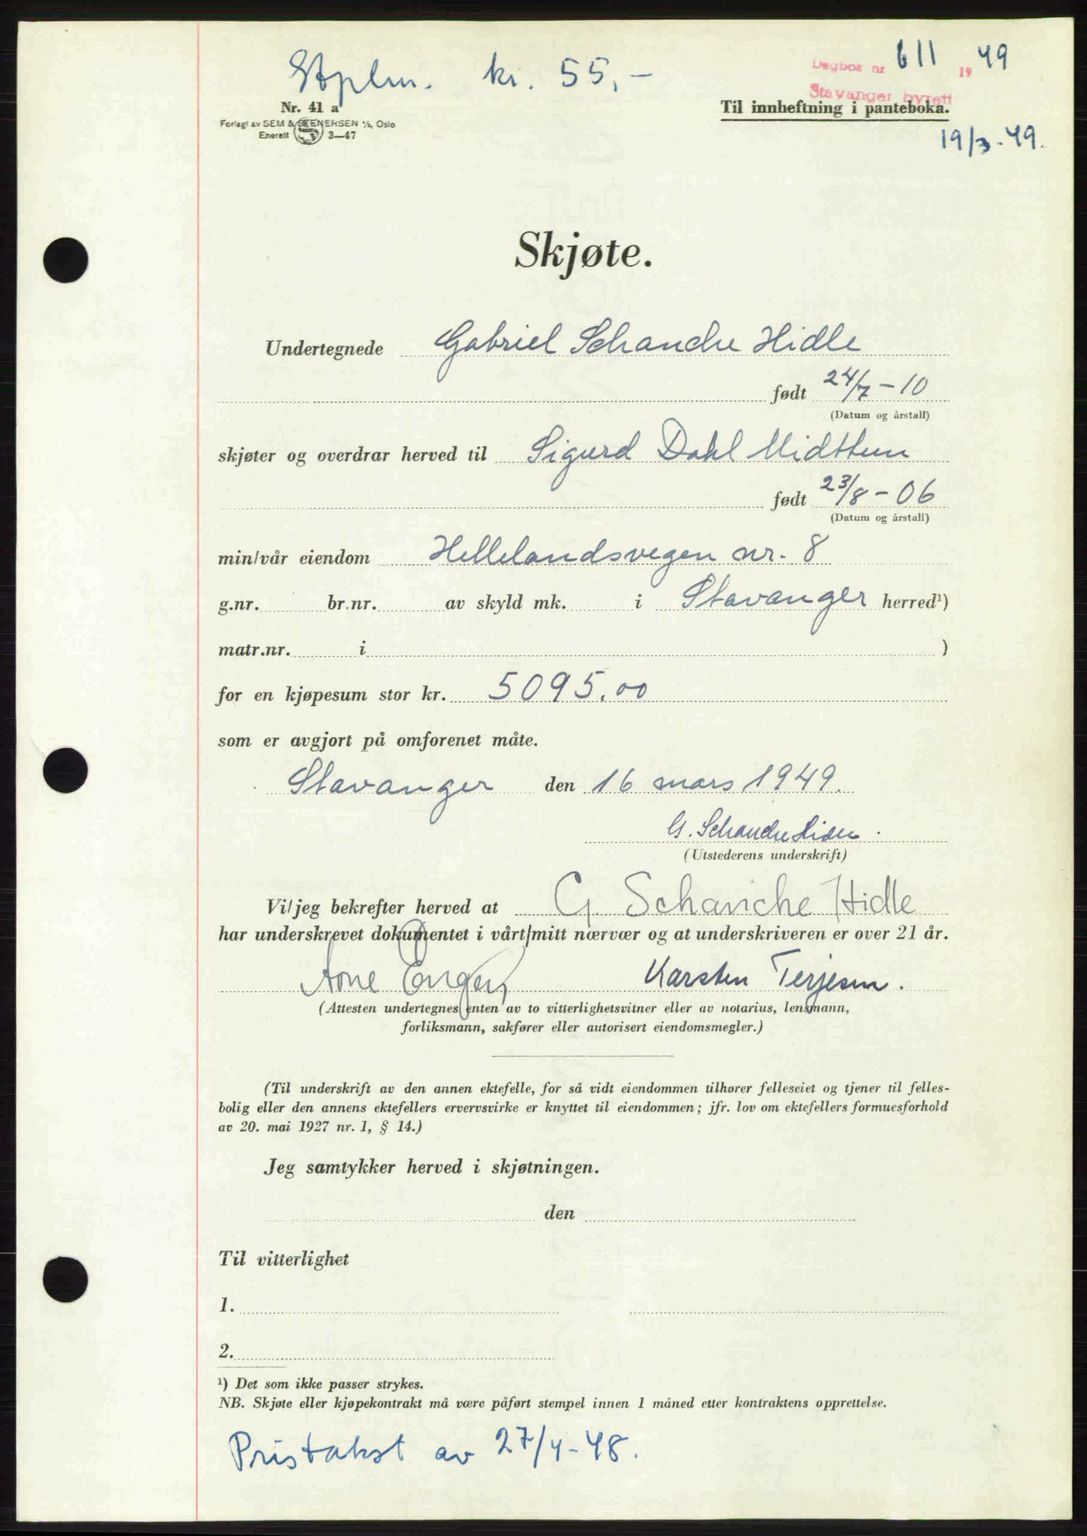 Stplm. kr. 55,-
Dagbok nr 611 1949
Stavanger byrett
Nr. 41 a
Forlagt av SEM & STENERSEN A/S, Oslo
Enerett 3—47
Til innheftning i panteboka.
19/3-49.
Skjøte.
Undertegnede Gabriel Schanche Hidle
født 24/7-10
(Datum og årstall)
skjøter og overdrar herved til Sigurd Dahl Midttun
født 23/8-06
(Datum og årstall)
min/vår eiendom Hellelandsvegen nr. 8
g.nr. br.nr. av skyld mk. i Stavanger herred¹)
matr.nr. i )
for en kjøpesum stor kr. 5095.00
som er avgjort på omforenet måte.
Stavanger den 16 mars 1949.
G. Schanche Hidle.
(Utstederens underskrift)
Vi/jeg bekrefter herved at G Schanche Hidle
har underskrevet dokumentet i vårt/mitt nærvær og at underskriveren er over 21 år.
Arne Enger Karsten Terjesen.
(Attesten undertegnes enten av to vitterlighetsvitner eller av notarius, lensmann,
forliksmann, sakfører eller autorisert eiendomsmegler.)
(Til underskrift av den annen ektefelle, for så vidt eiendommen tilhører felleseiet og tjener til felles-
bolig eller den annens ektefellers ervervsvirke er knyttet til eiendommen; jfr. lov om ektefellers formuesforhold
av 20. mai 1927 nr. 1, § 14.)
Jeg samtykker herved i skjøtningen.
den
Til vitterlighet
1.
2.
¹) Det som ikke passer strykes.
NB. Skjøte eller kjøpekontrakt må være påført stempel innen 1 måned etter kontraktens opprettelse.
Pristakst av 27/4-48.